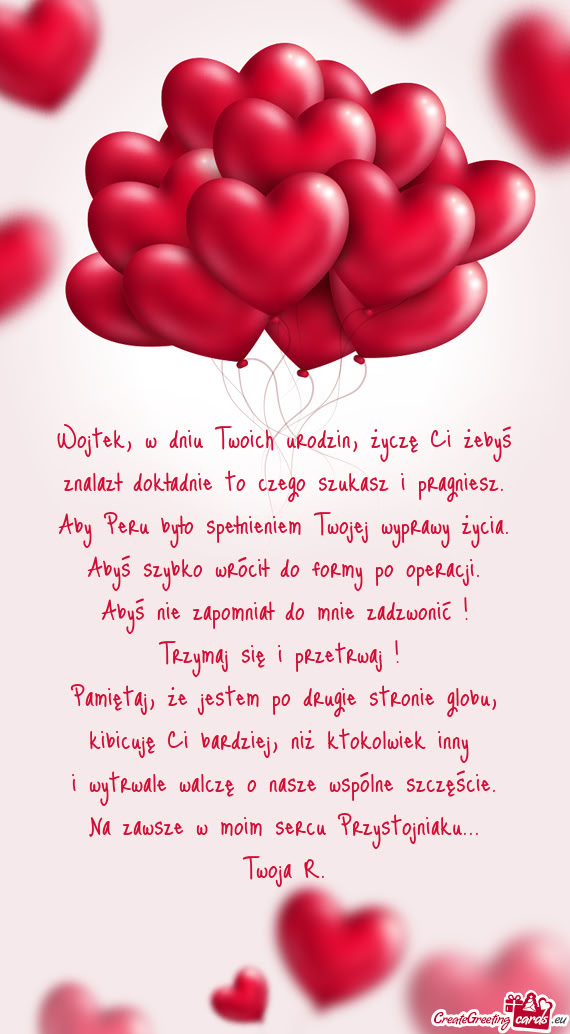 Wojtek, w dniu Twoich urodzin, życzę Ci żebyś
znalazł dokładnie to czego szukasz i pragniesz.
Aby Peru było spełnieniem Twojej wyprawy życia.
Abyś szybko wrócił do formy po operacji.
Abyś nie zapomniał do mnie zadzwonić !
Trzymaj się i przetrwaj !
Pamiętaj, że jestem po drugie stronie globu,
kibicuję Ci bardziej, niż ktokolwiek inny
i wytrwale walczę o nasze wspólne szczęście.
Na zawsze w moim sercu Przystojniaku...
Twoja R.
CreateGreetingcards.eu